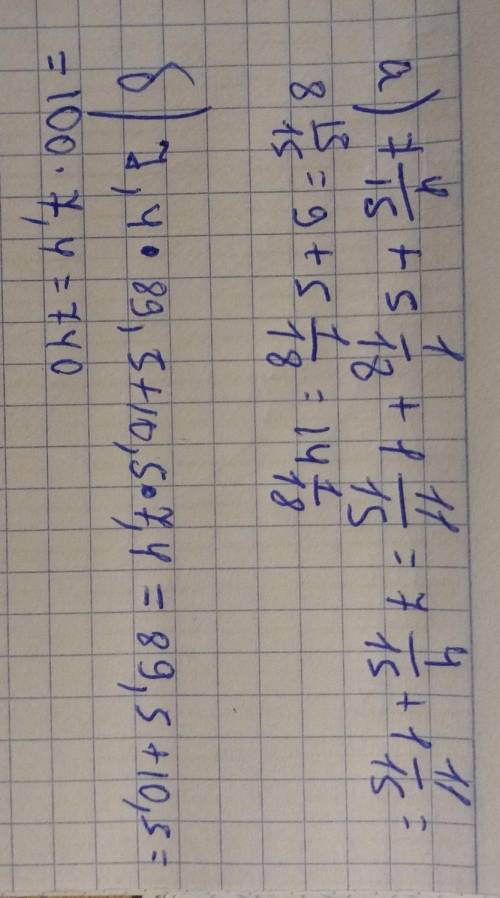 а) 7 4/15 + 5 1/18 + 1 11/15 = 7 4/15 + 1 11/15 =
8 15/15 = 9 + 5 1/18 = 14 1/18
б) 7,4 • 89,5 + 10,5 • 7,4 = 89,5 + 10,5 =
= 100 • 7,4 = 740